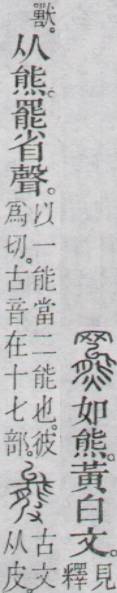 羆如熊。黃白文。
見
釋
獸。从熊。罷省聲。
以一能當二能也。彼
爲切。古音在十七部。
古文
从皮。